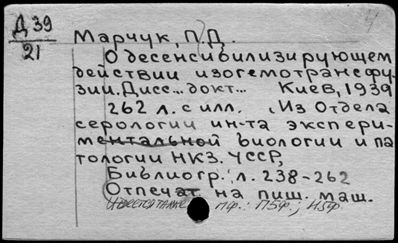 Д 39
21
Марчук, П.Д.
О десенсибилизирующем
действии изогемотрансфу-
зии. Дисс... докт... Киев, 1939
262 л. с илл. (Из Отдела
серологии ин-та экспери-
ментальной биологии и па
тологии НКЗ. УССР,
Библиогр: л. 238-262
Отпечат на пиш. маш.
Имеется также пф.: П5ф.; И5ф